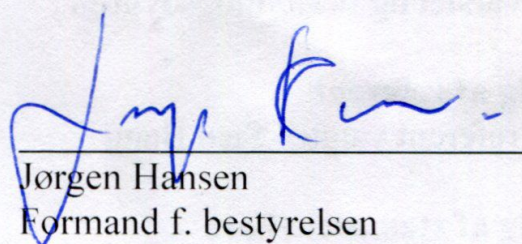 Jørgen Hansen
Formand f. bestyrelsen